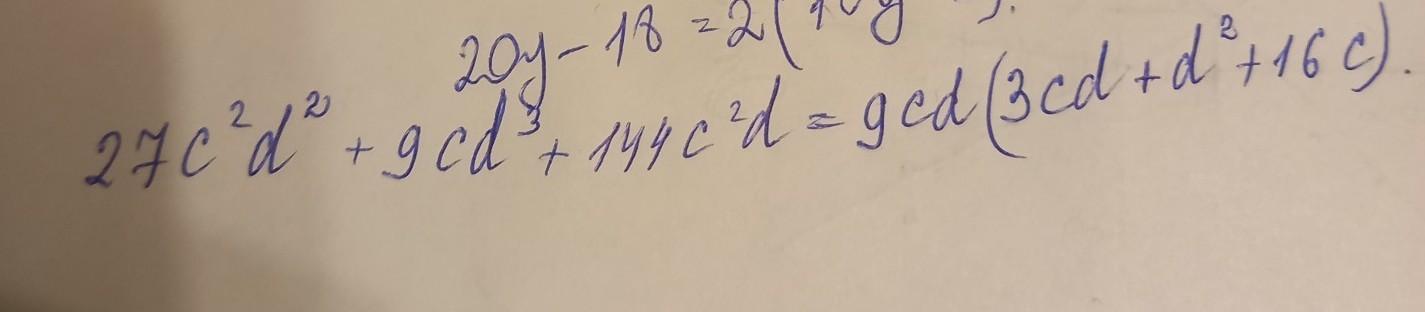 20y - 18 = 2(10y
27c²d² + 9cd³ + 144c²d = 9cd(3cd + d² + 16c).